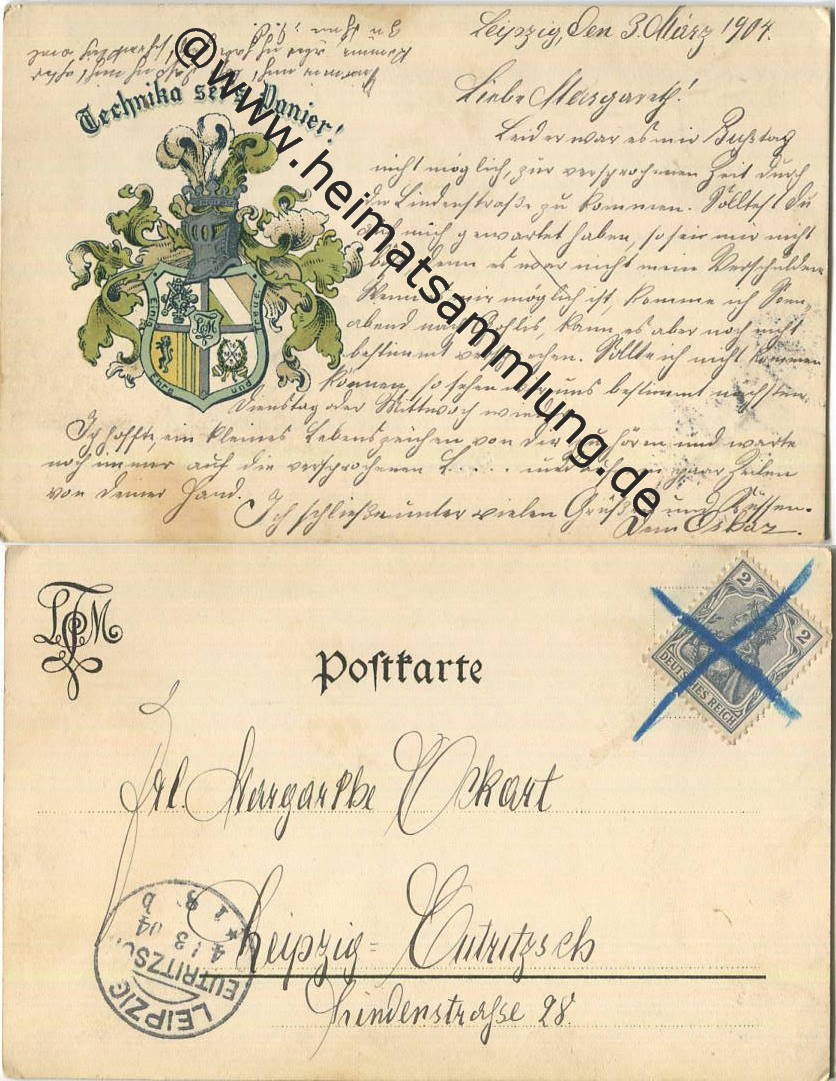 Leipzig, den 3. März 1904.
Liebe Margareth!
Leider war es mir Bußtag
nicht möglich, zur versprochenen Zeit durch
die Lindenstraße zu kommen. Solltest Du
auf mich gewartet haben, so sei mir nicht
denn es war nicht meine Verschulden
Wenn mir möglich ist, komme ich Sonn-
abend nach Gohlis, kann es aber noch nicht
bestimmt versprechen. Sollte ich nicht kommen
können, so sehen wir uns bestimmt nächsten
Dienstag oder Mittwoch wieder.
Ich hoffte, ein kleines Lebenszeichen von Dir zu hören und warte
noch immer auf die versprochenen L..... und paar Zeilen
von Deiner Hand.
Ich schließe unter vielen Grüßen und Küssen.
Dein Oskar.
Technika sei's Panier!
Einig
Treue
Ehre und
LTM
@www.heimatsammlung.de
LTM
Postkarte
2
2
DEUTSCHES REICH
Frl. Margarethe Eckart
Leipzig-Eutritzsch
Lindenstrasse 28.
LEIPZIG
EUTRITZSCH
4 3 04
* 1 b